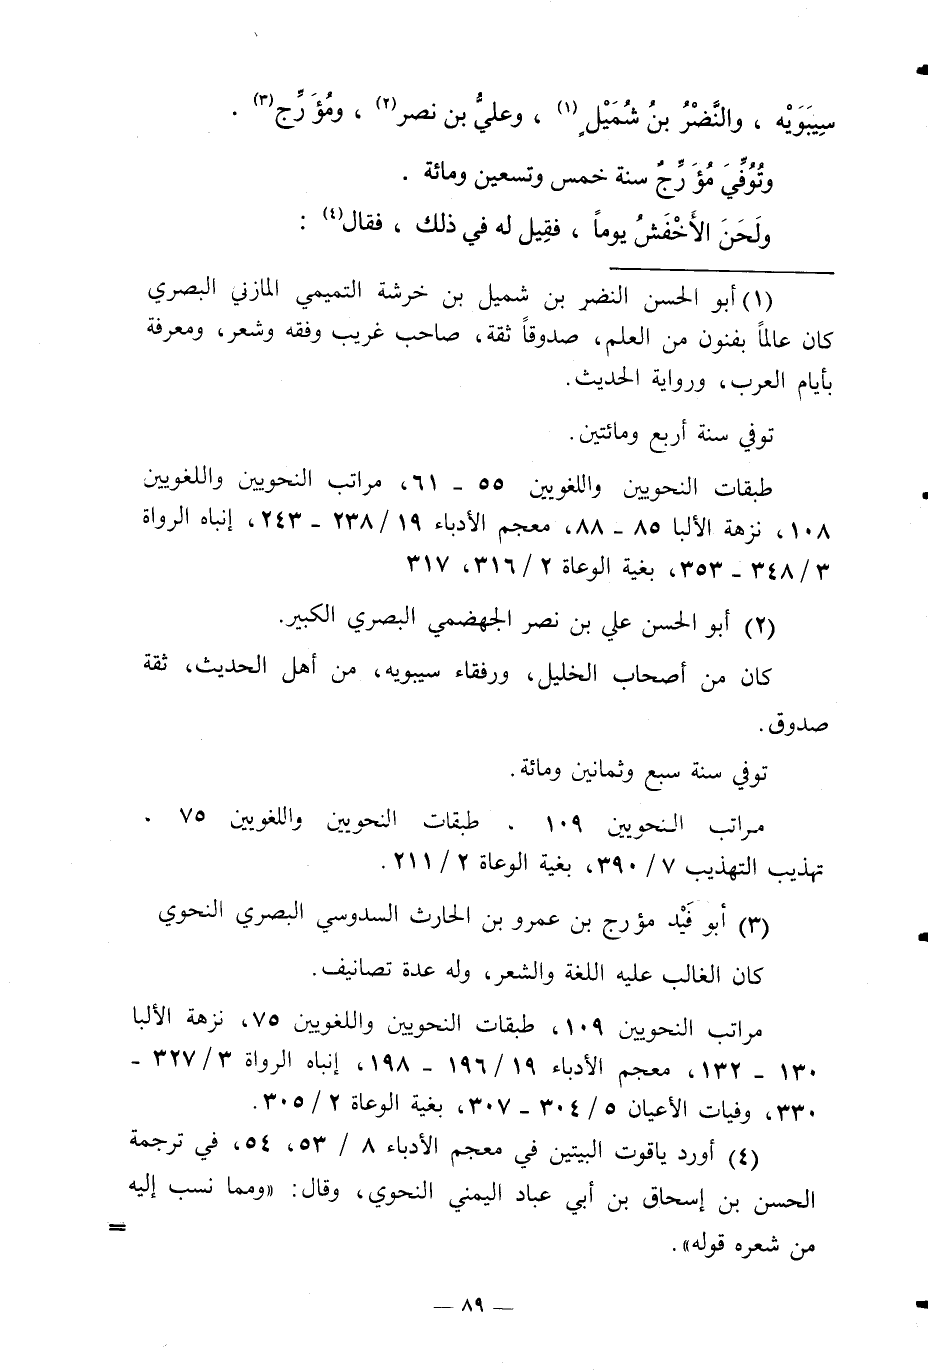 سِيبَوَيْه ، والنَّضْرُ بنُ شُمَيْلٍ(١) ، وعليُّ بن نصر(٢) ، ومُؤَرِّج(٣) .
وتُوُفِّيَ مُؤَرِّجٌ سنة خمس وتسعين ومائة .
ولَحَنَ الأَخْفَشُ يوماً ، فقِيل له في ذلك ، فقال(٤) :
(١) أبو الحسن النضر بن شميل بن خرشة التميمي المازني البصري
كان عالماً بفنون من العلم، صدوقاً ثقة، صاحب غريب وفقه وشعر، ومعرفة
بأيام العرب، ورواية الحديث.
توفي سنة أربع ومائتين.
طبقات النحويين واللغويين ٥٥ ـ ٦١، مراتب النحويين واللغويين
١٠٨، نزهة الألبا ٨٥ ـ ٨٨، معجم الأدباء ١٩/ ٢٣٨ ـ ٢٤٣، إنباه الرواة
٣/ ٣٤٨ ـ ٣٥٣، بغية الوعاة ٢/ ٣١٦، ٣١٧
(٢) أبو الحسن علي بن نصر الجهضمي البصري الكبير.
كان من أصحاب الخليل، ورفقاء سيبويه، من أهل الحديث، ثقة
صدوق.
توفي سنة سبع وثمانين ومائة.
مراتب النحويين ١٠٩ . طبقات النحويين واللغويين ٧٥ .
تهذيب التهذيب ٧/ ٣٩٠، بغية الوعاة ٢/ ٢١١.
(٣) أبو فَيْد مؤرج بن عمرو بن الحارث السدوسي البصري النحوي
كان الغالب عليه اللغة والشعر، وله عدة تصانيف.
مراتب النحويين ١٠٩، طبقات النحويين واللغويين ٧٥، نزهة الألبا
١٣٠ ـ ١٣٢، معجم الأدباء ١٩/ ١٩٦ ـ ١٩٨، إنباه الرواة ٣/ ٣٢٧ ـ
٣٣٠، وفيات الأعيان ٥/ ٣٠٤ ـ ٣٠٧، بغية الوعاة ٢/ ٣٠٥.
(٤) أورد ياقوت البيتين في معجم الأدباء ٨ / ٥٣، ٥٤، في ترجمة
الحسن بن إسحاق بن أبي عباد اليمني النحوي، وقال: «ومما نسب إليه
من شعره قوله». =
— ٨٩ —